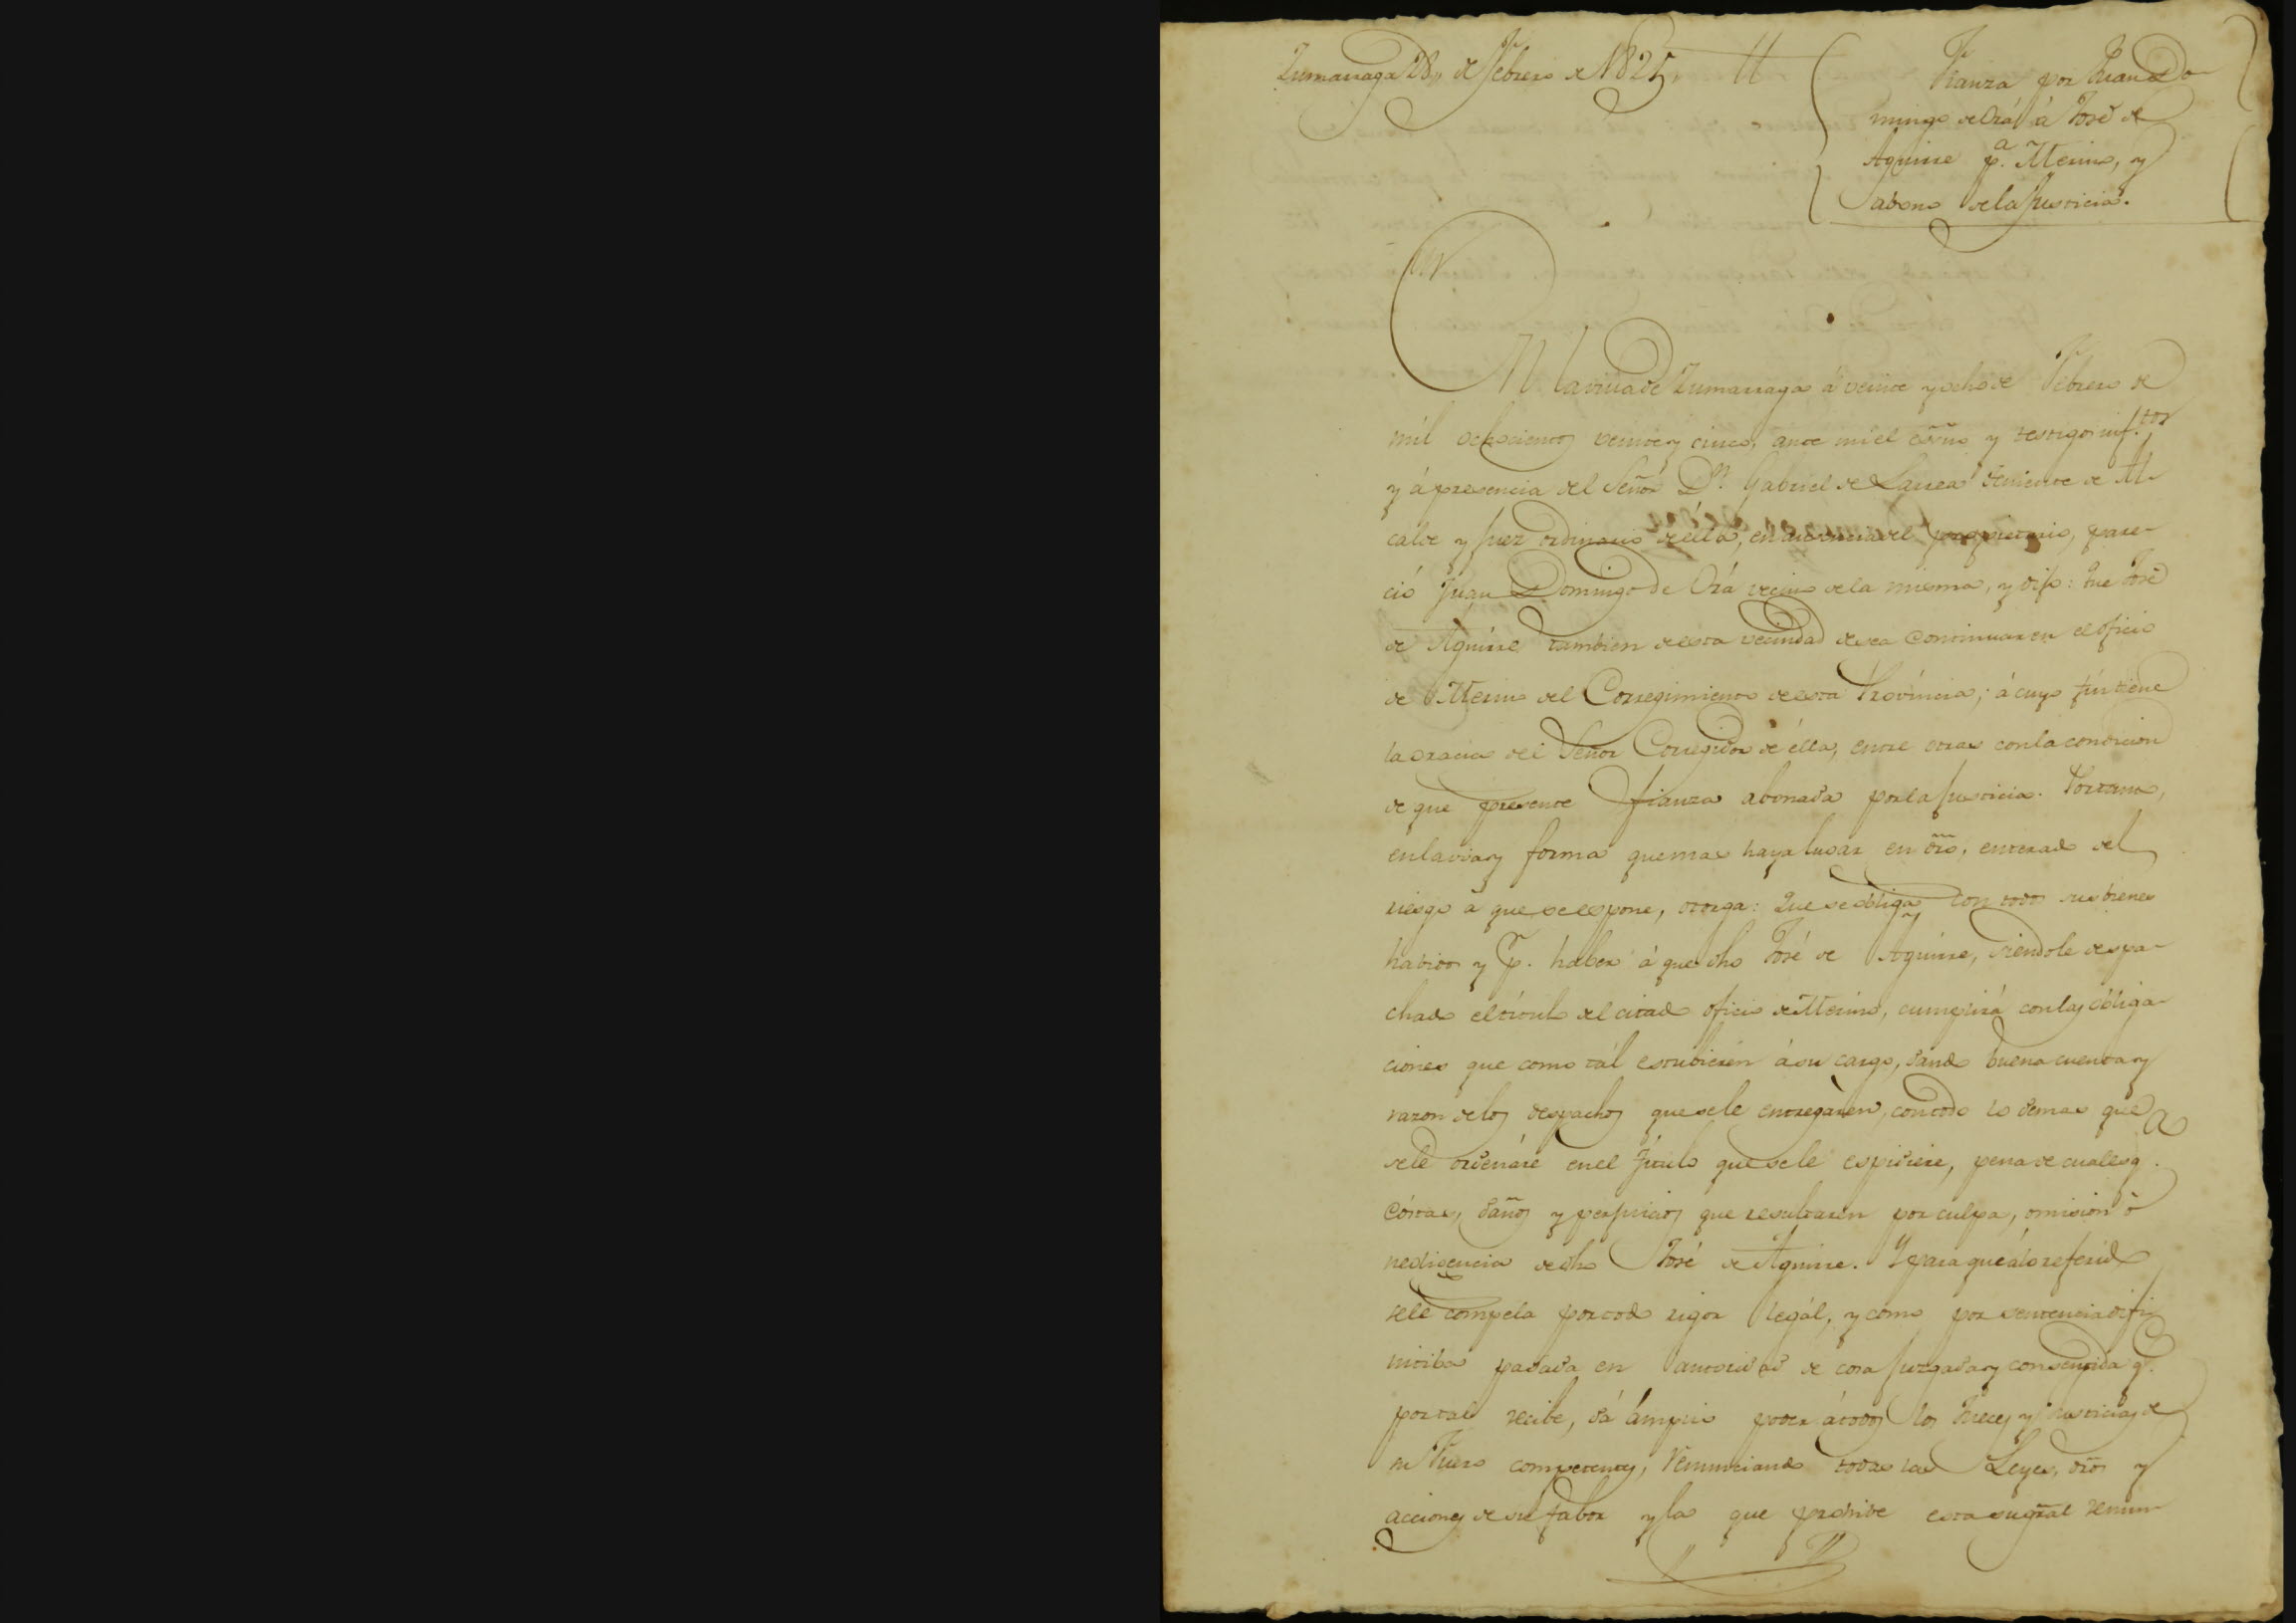 Zumarraga 28,, de Febrero de 1825,
Fianza por Juan Do-
mingo de Orá á José de
Aguirre p.ª Merino, y
abono de la Justicia.
EN la villa de Zumarraga á veinte y ocho de Febrero de
mil ochocientos veinte y cinco, ante mi el esc̃no y testigos inf.tos
y á presencia del Señor D.n Gabriel de Larrea teniente de Al-
calde y Juez ordinario de ella, en ausencia del propietario, pare-
ció Juan Domingo de Orá vecino de la misma, y dijo: Que José
de Aguirre tambien de esta vecindad desea continuar en el oficio
de Merino del Corregimiento de esta Provincia; á cuyo fin tiene
la gracia del Señor Corregidor de élla, entre otras con la condicion
de que presente fianza abonada por la Justicia. Por tanto,
en la via y forma que mas haya lugar en dr̃o, enterado del
riesgo á que se espone, otorga: Que se obliga con todos sus bienes
habidos y p.r haber á que dho José de Aguirre, siendole despa-
chado el título del citado oficio de Merino, cumplirá con las obliga-
ciones que como tál estubieren á su cargo, dando buena cuenta y
razon de los despachos que se le entregáren, con todo lo demas que
se le ordenáre en el Título que se le espidiere, pena de cualesq.a
cóstas, daños y perjuicios que resultaren por culpa, omision ó
negligencia de dho José de Aguirre. Y para que á lo referido
se le compela por todo rigor legál, y como por sentencia difi-
nitiba pasada en autoridad de cosa juzgada y consentida q.e
por tal recibe, dá ámplio poder á todos los Jueces y Justicias de
su Fuero competentes, renunciando todas las Leyes, dr̃os y
acciones de su fabor y la que prohibe esta su gr̃al renun-